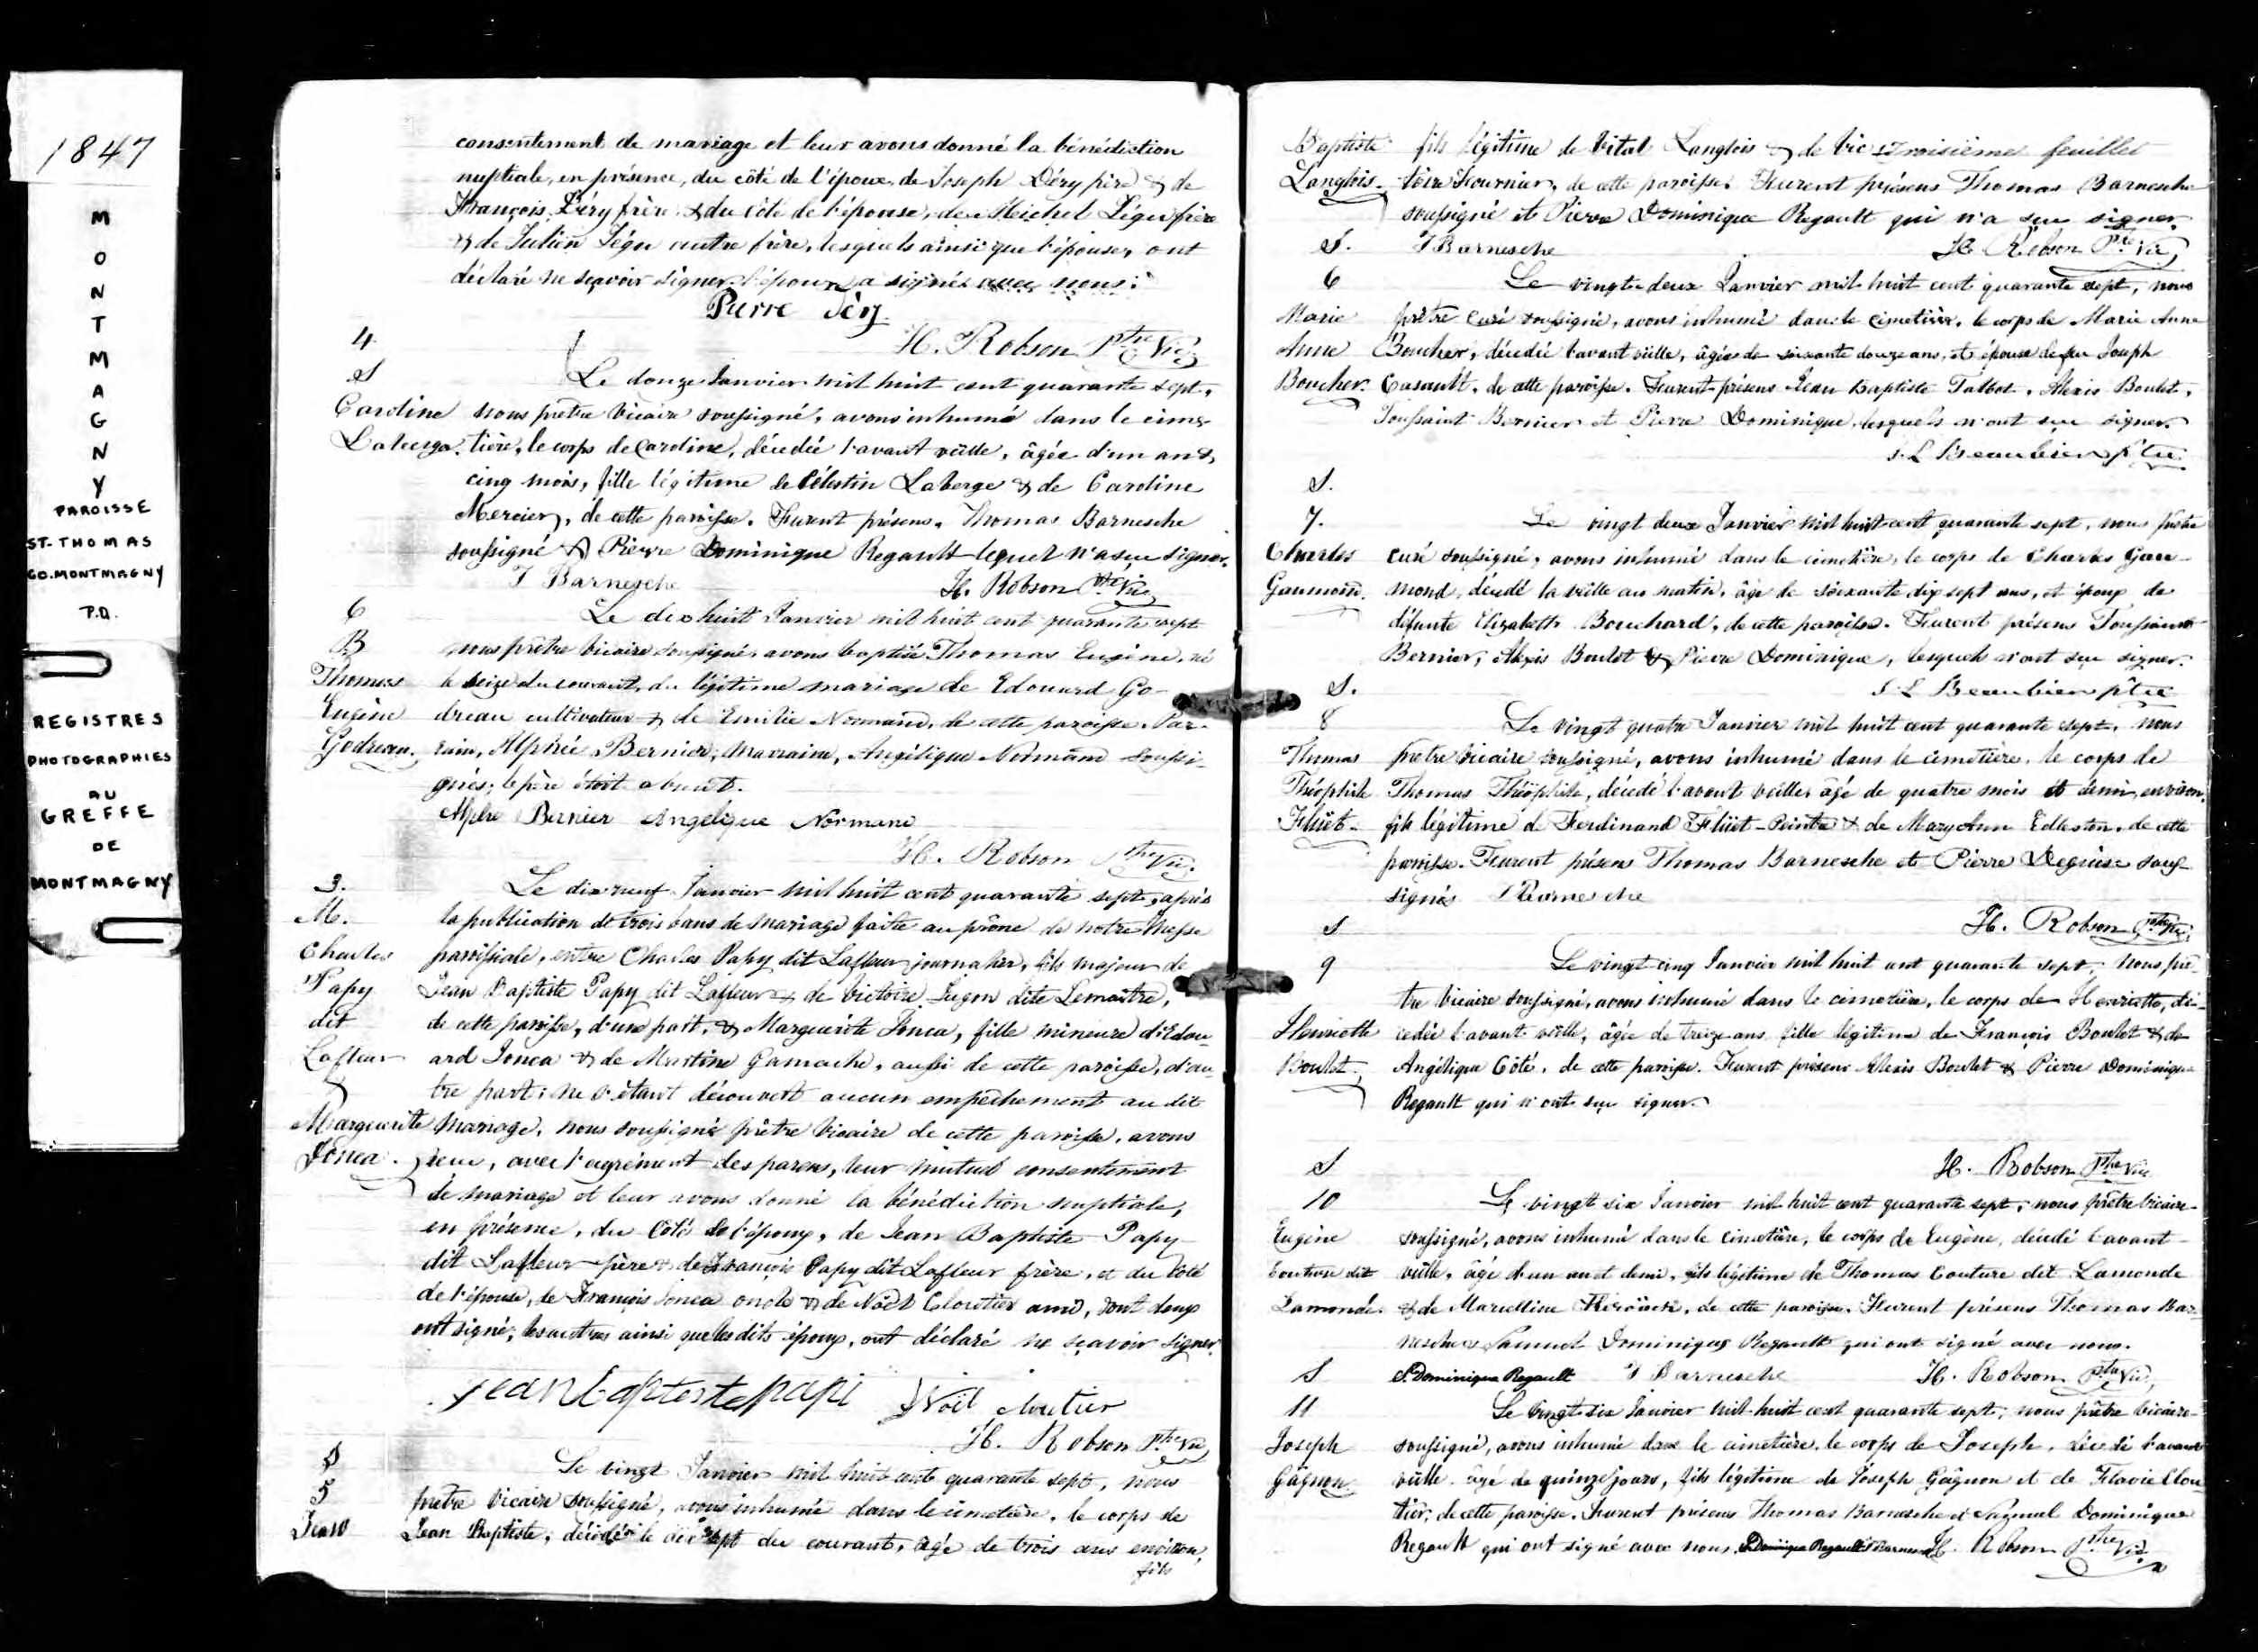 1847
MONTMAGNY
PAROISSE
ST-THOMAS
CO. MONTMAGNY
P.Q.
REGISTRES
PHOTOGRAPHIES
AU
GREFFE
DE
MONTMAGNY
consentement de mariage et leur avons donné la bénédiction
nuptiale, en présence, du côté de l'époux, de Joseph Déry père & de
François Déry frère & du côté de l'épouse, de Meichel Légu frère
& de Julien Légu autre frère, lesquels ainsi que l'épouse, ont
déclaré ne sçavoir signer, l'époux a signé avec nous.
Pierre Déry
H. Robson Ptre Vic.
4
S
Caroline
Laberge
Le douze Janvier mil huit cent quarante sept,
nous prêtre vicaire soussigné, avons inhumé dans le cime-
tière, le corps de Caroline, décédée l'avant veille, âgée d'un an &
cinq mois, fille légitime de Célestin Laberge & de Caroline
Mercier, de cette paroisse. Furent présens, Thomas Barnesche
soussigné & Pierre Dominique Regault lequel n'a sçu signer.
T Barnesche H. Robson Ptre Vic
6
B
Thomas
Eugène
Godreau.
Le dix huit Janvier mil huit cent quarante sept
nous prêtre vicaire soussigné avons baptisé Thomas Eugène, né
le seize du courant, du légitime mariage de Edouard Go-
dreau cultivateur & de Emilie Normand, de cette paroisse. Par-
rain, Alphée Bernier; marraine, Angélique Normand soussi-
gnés; le père étoit absent.
Alphe Bernier Angelique Normand
H. Robson Ptre Vic.
3.
M.
Charles
Papy
dit
Lafleur
&
Marguerite
Jonca.
Le dix neuf Janvier mil huit cent quarante sept, après
la publication de trois bans de mariage faite au prône de notre Messe
paroissiale, entre Charles Papy dit Lafleur journalier, fils majeur de
Jean Baptiste Papy dit Lafleur & de Victoire Lugon dite Lemaître,
de cette paroisse, d'une part, & Marguerite Jonca, fille mineure d'Edou-
ard Jonca & de Martine Gamache, aussi de cette paroisse, d'au-
tre part; ne s'étant découvert aucun empêchement au dit
mariage, nous soussigné prêtre vicaire de cette paroisse, avons
reçu, avec l'agrément des parens, leur mutuel consentement
de mariage et leur avons donné la bénédiction nuptiale,
en présence, du côté de l'époux, de Jean Baptiste Papy
dit Lafleur père & de François Papy dit Lafleur frère, et du côté
de l'épouse, de François Jonca oncle & de Noël Cloutier ami, dont deux
ont signé; les autres ainsi que les dits époux, ont déclaré ne sçavoir signer.
Jean baptiste papi Noël cloutier
H. Robson Ptre Vic
S
5
Jean
Le vingt Janvier mil huit cent quarante sept, nous
prêtre vicaire soussigné, avons inhumé dans le cimetière, le corps de
Jean Baptiste, décédé le dix sept du courant, âgé de trois ans environ,
fils
Baptiste
Langlois
Troisième feuillet
fils légitime de Vital Langlois & de Vic-
toire Fournier, de cette paroisse. Furent présens Thomas Barnesche
soussigné et Pierre Dominique Regault qui n'a sçu signer.
T Barnesche H. Robson Ptre Vic
S.
6
Marie
Anne
Boucher.
Le vingt deux Janvier mil huit cent quarante sept, nous
prêtre curé soussigné, avons inhumé dans le cimetière, le corps de Marie Anne
Boucher, décédée l'avant veille, âgée de soixante douze ans, et épouse de feu Joseph
Casault, de cette paroisse. Furent présens Jean Baptiste Talbot, Alexis Boulet,
Toussaint Bernier et Pierre Dominique, lesquels n'ont sçu signer.
J. L Beaubien ptre
S.
7.
Charles
Gaumond.
Le vingt deux Janvier mil huit cent quarante sept, nous prêtre
curé soussigné, avons inhumé dans le cimetière, le corps de Charles Gau-
mond, décédé la veille au matin, âgé de soixante dix sept ans, et époux de
défunte Elizabeth Bouchard, de cette paroisse. Furent présens Toussaint
Bernier, Alexis Boulet & Pierre Dominique, lesquels n'ont sçu signer.
J. L Beaubien ptre
S.
8
Thomas
Théophile
Fluet
Le vingt quatre Janvier mil huit cent quarante sept, nous
prêtre vicaire soussigné, avons inhumé dans le cimetière, le corps de
Thomas Théophile, décédé l'avant veille, âgé de quatre mois et demi environ,
fils légitime de Ferdinand Flüet Peintre & de Mary Ann Edleston, de cette
paroisse. Furent présens Thomas Barnesche et Pierre Deguise sous-
signés T Barnesche
H. Robson Ptre Vic.
S
9
Henriette
Boulet
Le vingt cinq Janvier mil huit cent quarante sept, nous prê-
tre vicaire soussigné, avons inhumé dans le cimetière, le corps de Henriette, dé-
cédée l'avant veille, âgée de treize ans fille légitime de François Boulet & de
Angélique Côté, de cette paroisse. Furent présens Alexis Boulet & Pierre Dominique
Regault qui n'ont sçu signer.
H. Robson Ptre Vic
S
10
Eugène
Couture dit
Lamonde.
Le vingt six Janvier mil huit cent quarante sept; nous prêtre vicaire
soussigné, avons inhumé dans le cimetière, le corps de Eugène, décédé l'avant
veille, âgé d'un an et demi, fils légitime de Thomas Couture dit Lamonde
& de Marcelline, de cette paroisse. Furent présens Thomas Bar-
nesche & Samuel Dominique Regault qui ont signé avec nous.
S. Dominique Regault T Barnesche H. Robson Ptre Vic,
S
11
Joseph
Gagnon
Le vingt six Janvier mil huit cent quarante sept; nous prêtre vicaire
soussigné, avons inhumé dans le cimetière, le corps de Joseph, décédé l'avant
veille âgé de quinze jours, fils légitime de Joseph Gagnon et de Flavie Clou
tier, de cette paroisse. Furent présens Thomas Barnesche et Samuel Dominique
Regault qui ont signé avec nous. S. Dominique Regault T Barnesche H. Robson Ptre Vic